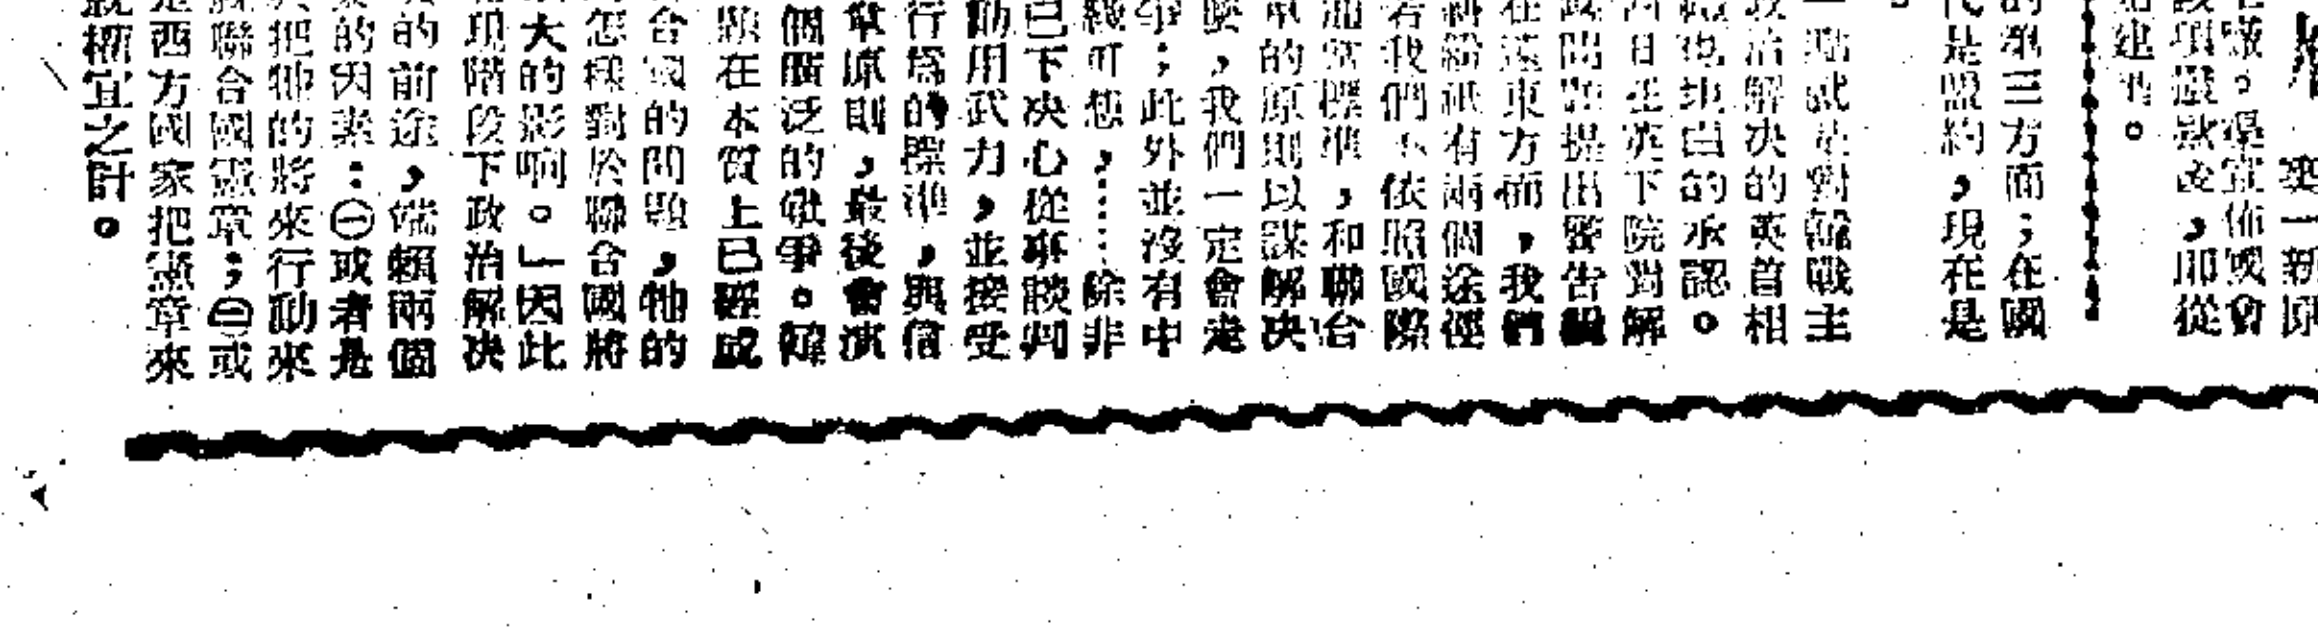 裏一新原
宣佈國會
該項最後，即從
建
的第三方面；在國
代是盟約，現在是
一點或是對韓戰主
政治解決的英首相
坦白的承認。
日在英下院對解
此問題提出警告說
在遠東方面，我們
糾紛祇有兩個途徑
若我們不依照國際
標準，和聯合
章的原則以謀解決
麼，我們一定會走
爭；此外並沒有中
綫可想，……除非
已下决心從事談判
動用武力，並接受
行爲的標準，與信
章原則，最後會演
個廣泛的戰爭。韓
題在本質上已經成
合國的問題，牠的
怎樣對於聯合國將
大的影响。」因此
現階段下政治解决
的前途，端賴兩個
的因素：㊀或者是
把牠的將來行動來
聯合國憲章；㊁或
是西方國家把憲章來
就權宜之計。